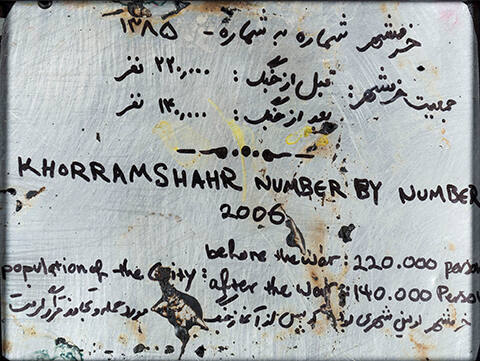 خرمشهر شماره به شماره - ۱۳۸۵
جمعیت خرمشهر: قبل از جنگ: ۲۲۰,۰۰۰ نفر
بعد از جنگ: ۱۴۰,۰۰۰ نفر
KHORRAMSHAHR NUMBER BY NUMBER
2006
before the war: 220.000 person
population of the city: after the war: 140.000 Person
خرمشهر اولین شهری پس از آغاز جنگ مورد حمله و تجاوز قرار گرفت